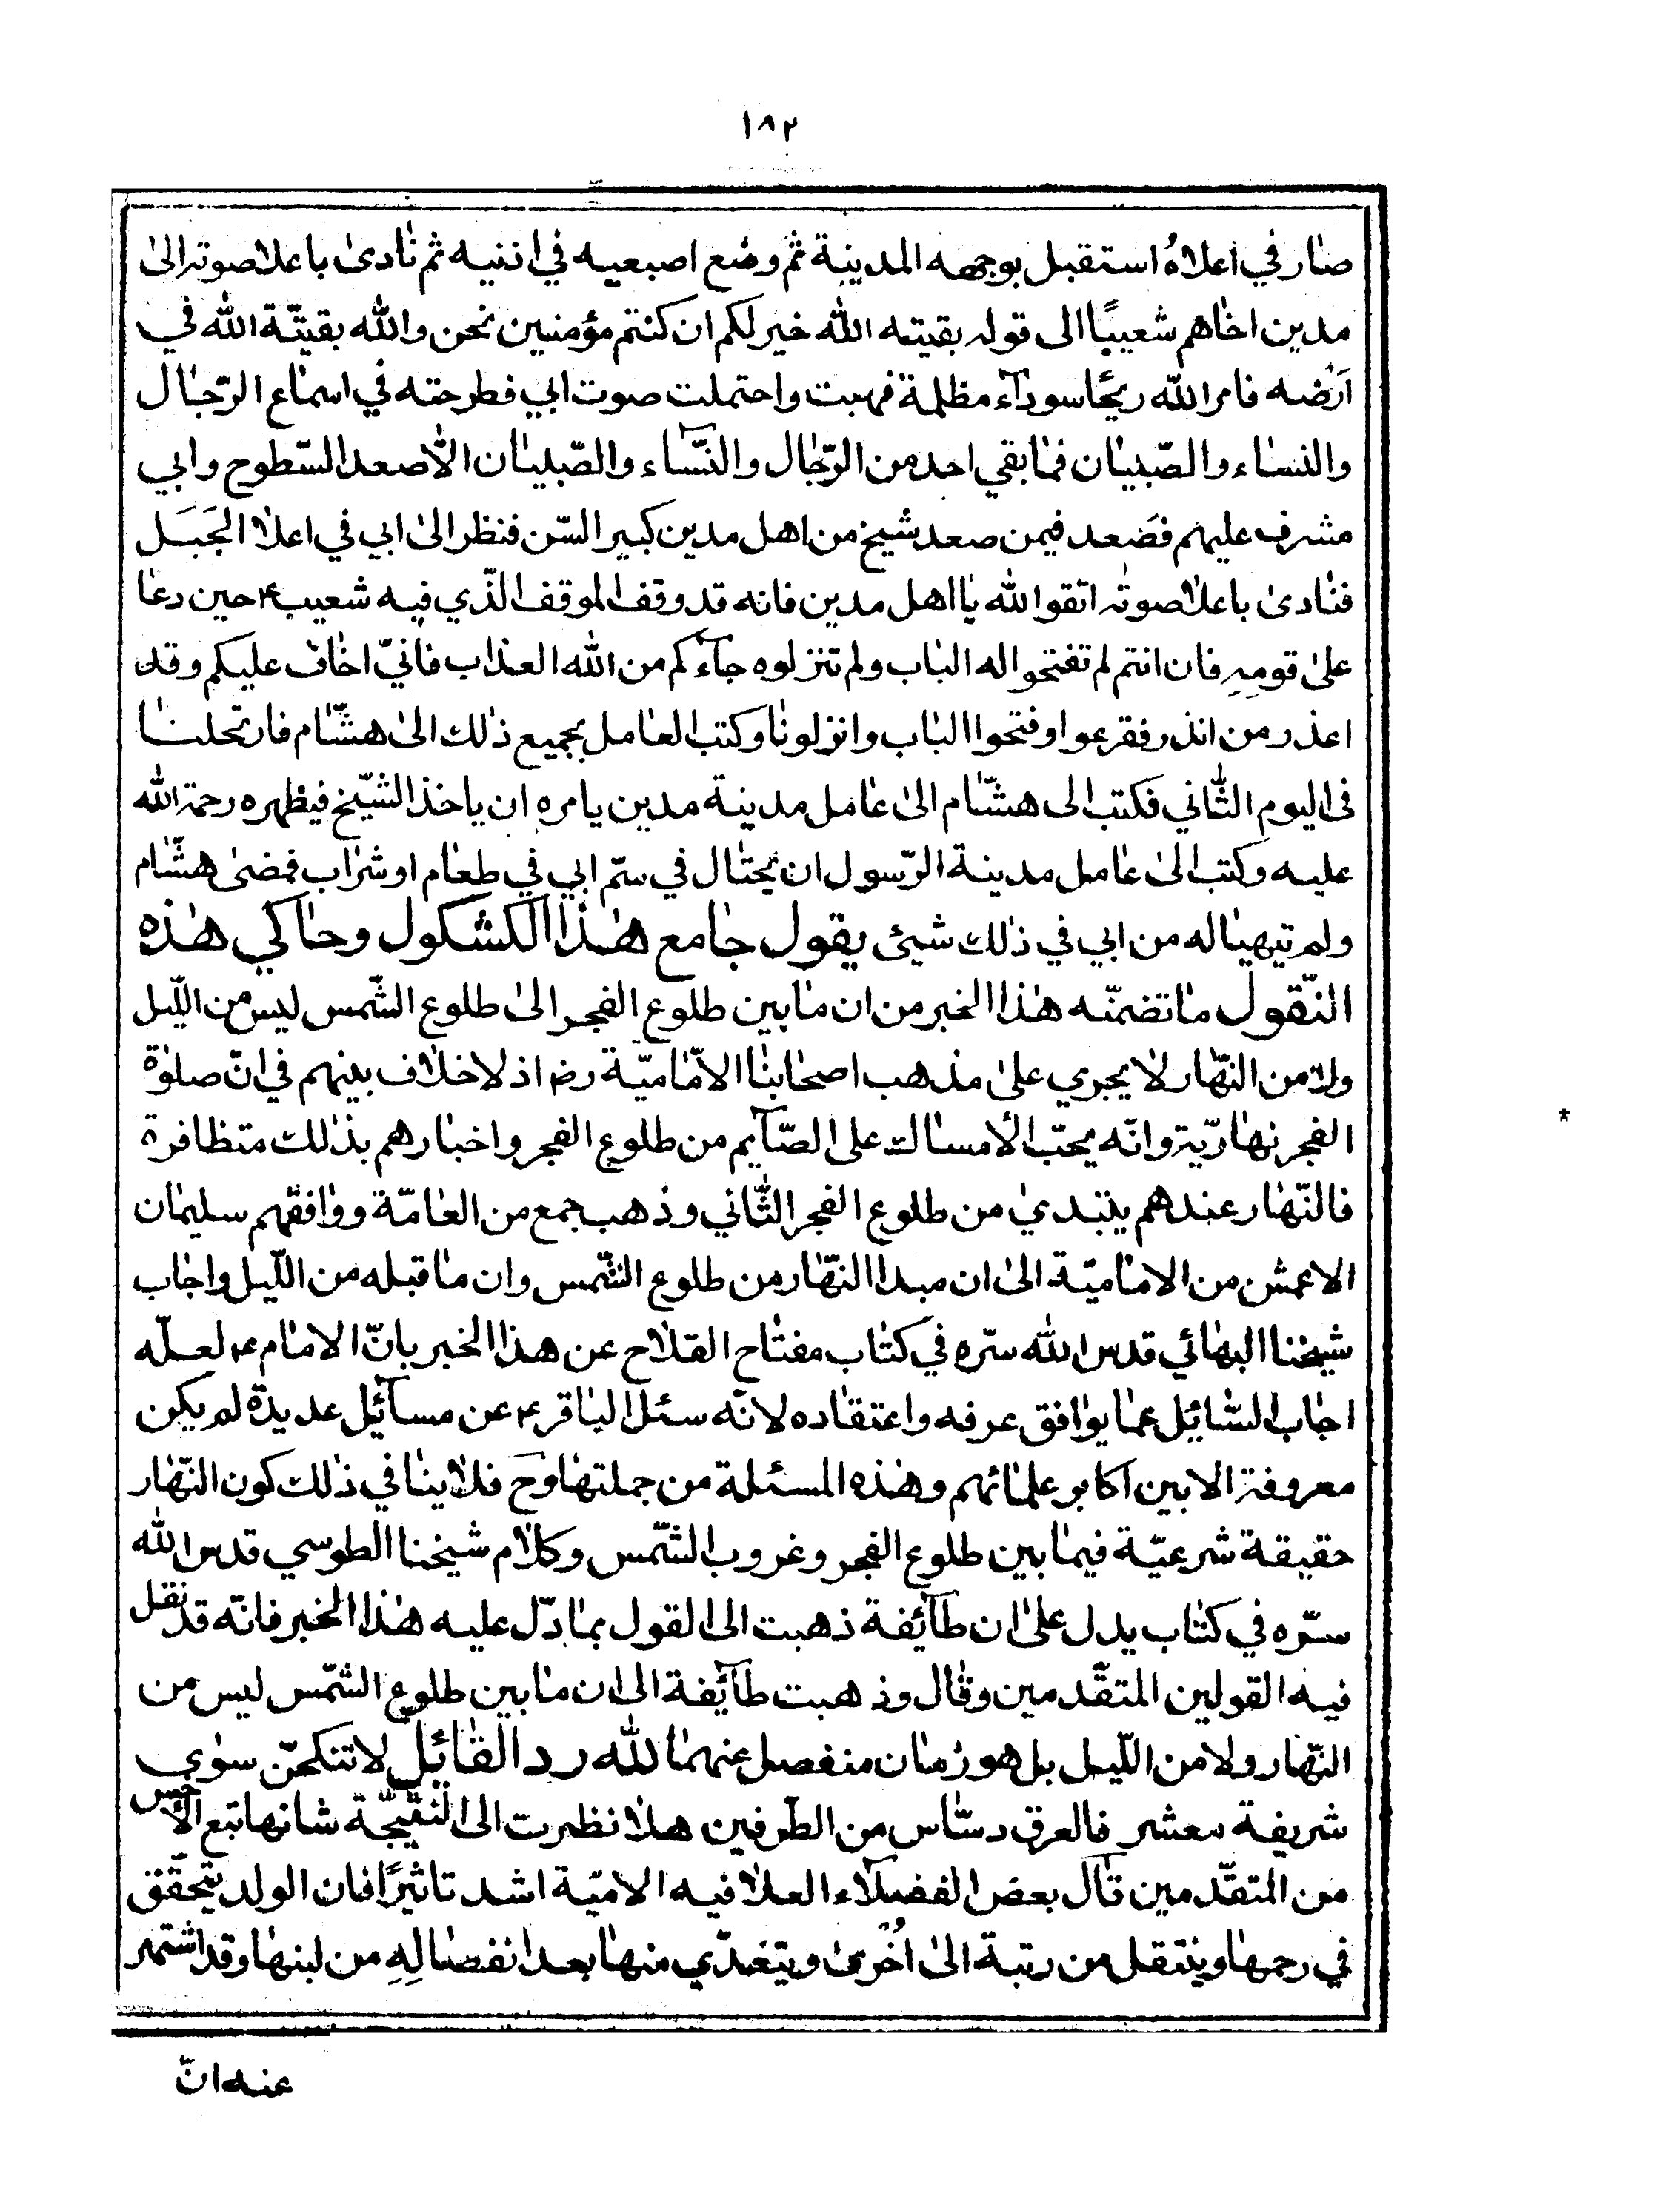 ١٨٢
صار في اعلاهُ استقبل بوجهه المدينة ثم وضع اصبعيه في اذنيه ثم نادى باعلا صوته الى
مدين اخاهم شعيبًا الى قوله بقيته الله خير لكم ان كنتم مؤمنين نحن والله بقيّة الله في
اَرضه فامر الله ريحًا سودآء مظلمة فهبت واحتملت صوت ابي فطرحته في اسماع الرّجال
والنساء والصّبيان فما بقي احد من الرّجال والنّسآء والصّبيان الّا صعد السّطوح وابي
مشرف عليهم فصَعد فيمن صعد شيخ من اهل مدين كبير السّن فنظر الى ابي في اعلا الجَبَل
فنادى باعلا صوته اتقوا الله يا اهل مدين فانه قد وقف الموقف الّذي فيه شعيب ع حين دعا
على قومهِ فان انتم لم تفتحوا له الباب ولم تنزلوه جآءكم من الله العذاب فانيّ اخاف عليكم وقد
اعذر من انذر ففزعوا وفتحوا الباب وانزلونا وكتب العامل بجميع ذلك الى هشّام فارتحلنا
فى اليوم الثّاني فكتب الى هشّام الى عامل مدينة مدين يامره ان ياخذ الشّيخ فيظهره رحمة الله
عليه وكتب الى عامل مدينة الرّسول ان يحتال في سمّ ابي في طعام او شراب فمضى هشّام
ولم تيهيا له من ابي في ذلك شيئ يقول جامع هذا الكشكول وحاكي هذه
النّقول ما تضمنّه هذا الخبر من ان ما بين طلوع الفجر الى طلوع الشّمس ليس من اللّيل
ولا من النّهار لا يجري على مذهب اصحابنا الامّاميّة رض اذ لا خلاف بينهم في انّ صلوٰة
الفجر نهاريّة وانّه يجبّ الأمساك على الصّآيم من طلوع الفجر واخبارهم بذلك متظافرة
فالنّهار عندهم يبتدي من طلوع الفجر الثّاني وذهب جمع من العامّة ووافقهم سليمان
الاعمش من الاماميّة الى ان مبدا النّهار من طلوع الشّمس وان ما قبله من اللّيل واجاب
شيخنا البهائي قدس الله سرّه في كتاب مفتاح الفلاح عن هذا الخبر بانّ الامام ع لعلّه
اجاب السّائيل عما يوافق عرفه واعتقاده لانّه سئل الباقر ع عن مسآئيل عديدة لم يكن
معروفة الا بين اكابر علمائهم وهذه المسئلة من جملتها وح فلا ينافي ذلك كون النّهار
حقيقة شرعيّة فيما بين طلوع الفجر وغروب الشّمس وكلام شيخنا الطوسي قدس الله
سرّه في كتاب يدل على ان طآئيفة ذهبت الى القول بما دّل عليه هذا الخبر فانّه قد نقل
فيه القولين المتقدّمين وقال وذهبت طآئيفة الى ان ما بين طلوع الشّمس ليس من
النّهار ولا من اللّيل بل هو زمان منفصل عنهما لله رد القائيل لا تنكحنّ سوى
شريفة معشر فالعرق دسّاس من الطّرفين هلا نظرت الى النّتيّجة شانها تبع الأخس
من المتقدّمين قال بعض الفضلآء العلا فيه الاميّة اشد تاثيرًا فان الولد يتحقّق
في رحمها وينتقل من رتبة الى اُخرى ويتغذّي منها بعد انفصالِهِ من لبنها وقد اشتهر
عنه انّ
*